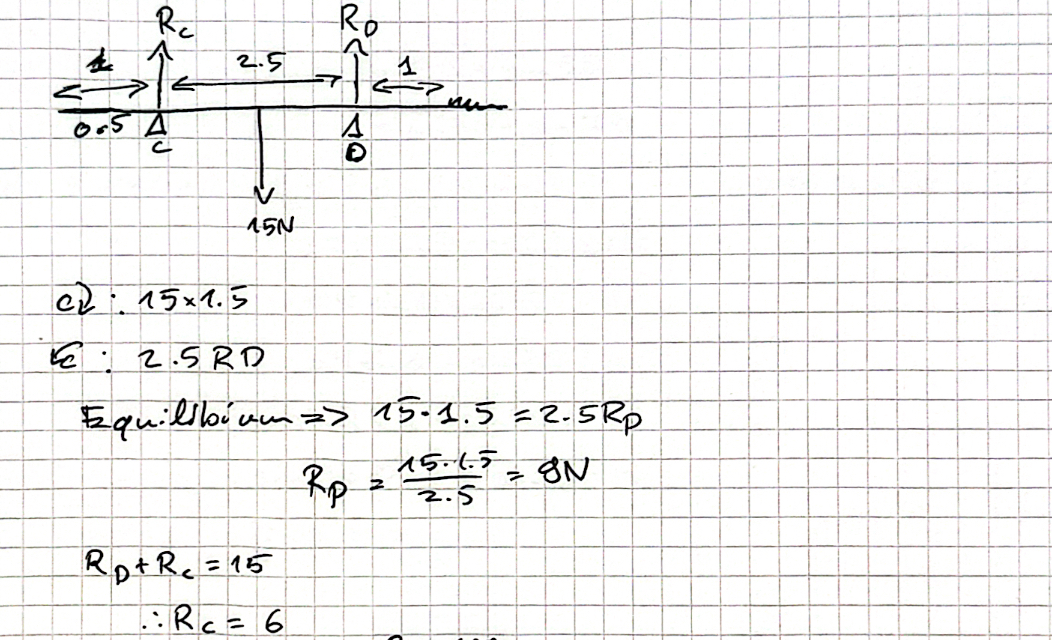 R_C R_D
2.5 1
0.5 C D
15N
C↻: 15×1.5
C↺: 2.5 RD
Equilibium => 15·1.5 = 2.5R_D
R_D = 15·1.5 / 2.5 = 8N
R_D + R_C = 15
∴ R_C = 6